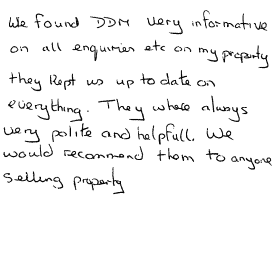 We found DDM very informative
on all enquiries etc on my property
they kept us up to date on
everything. They where always
very polite and helpfull. We
would recommend them to anyone
selling property